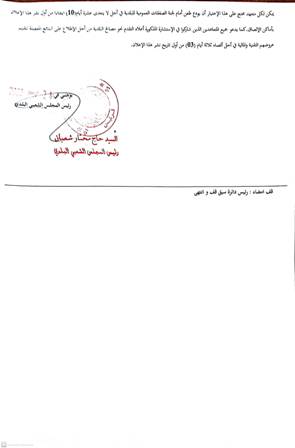 يمكن لكل متعهد محتج على هذا الإختيار أن يودع طعن أمام لجنة الصفقات العمومية للبلدية في أجل لا يتعدى عشرة أيام (10) ابتداء من أول نشر هذا الإعلان
بأماكن الإلصاق، كما يدعى جميع المتعاهدين الذين شاركوا في الإستشارة المذكورة أعلاه التقدم نحو مصالح البلدية من أجل الإطلاع على النتائج المفصلة لتقييم
عروضهم التقنية والمالية في أجل أقصاه ثلاثة أيام (03) من أول تاريخ نشر هذا الإعلان.
رئيس المجلس الشعبي البلدي
السيد حاج مختار شعبان
رئيس المجلس الشعبي البلدي
قف امضاء : رئيس دائرة سبق قف و انتهى